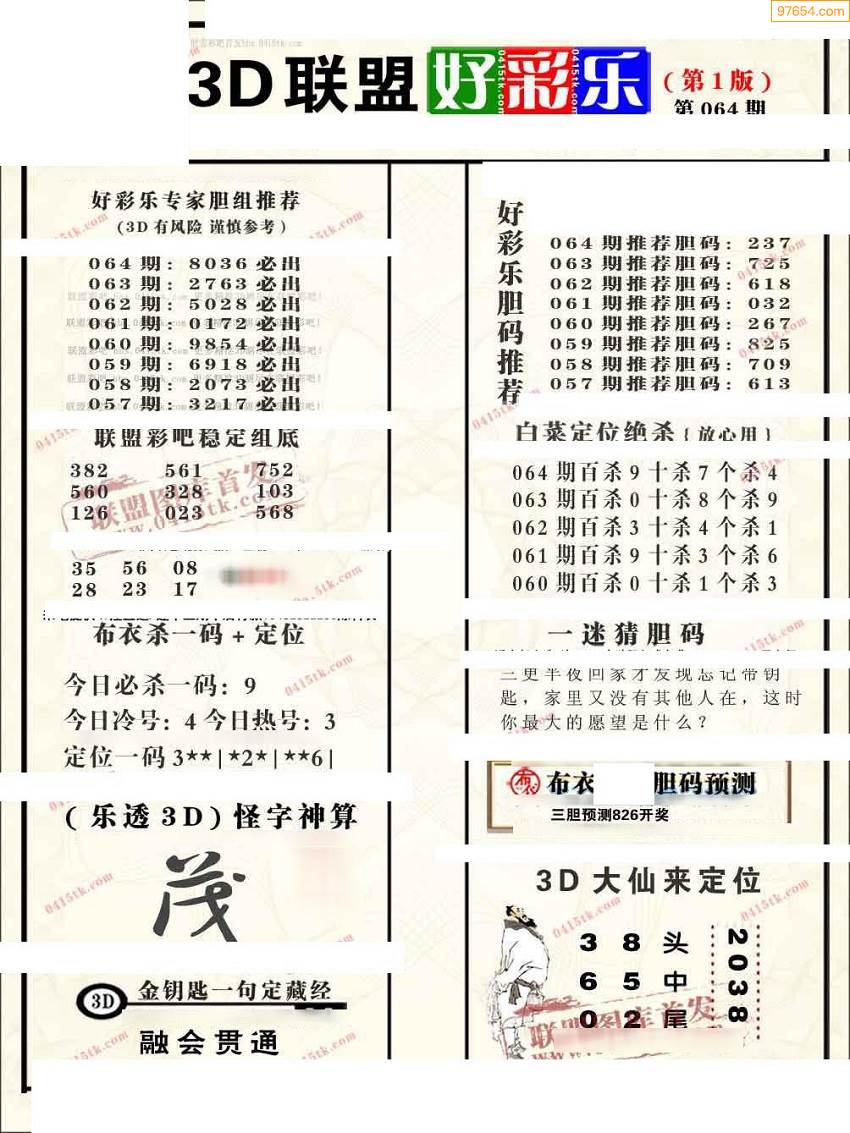 97654.com
3D联盟好彩乐
(第1版)
第064期
好彩乐专家胆组推荐
(3D有风险 谨慎参考)
064期: 8036必出
063期: 2763必出
062期: 5028必出
061期: 0172必出
060期: 9854必出
059期: 6918必出
058期: 2073必出
057期: 3217必出
联盟彩吧稳定组底
382 561 752
560 328 103
126 023 568
35 56 08
28 23 17
布衣杀一码+定位
今日必杀一码: 9
今日冷号: 4 今日热号: 3
定位一码 3**|*2*|**6|
(乐透3D)怪字神算
茂
3D 金钥匙一句定藏经
融会贯通
好彩乐胆码推荐
064期推荐胆码: 237
063期推荐胆码: 725
062期推荐胆码: 618
061期推荐胆码: 032
060期推荐胆码: 267
059期推荐胆码: 825
058期推荐胆码: 709
057期推荐胆码: 613
白菜定位绝杀{放心用}
064期百杀9十杀7个杀4
063期百杀0十杀8个杀9
062期百杀3十杀4个杀1
061期百杀9十杀3个杀6
060期百杀0十杀1个杀3
一迷猜胆码
三更半夜回家才发现忘记带钥
匙，家里又没有其他人在，这时
你最大的愿望是什么？
布衣 胆码预测
三胆预测826开奖
3D大仙来定位
3 8 头
6 5 中
0 2 尾
2038
联盟图库首发
www.0415tk.com
联盟图库首发
0415tk.com